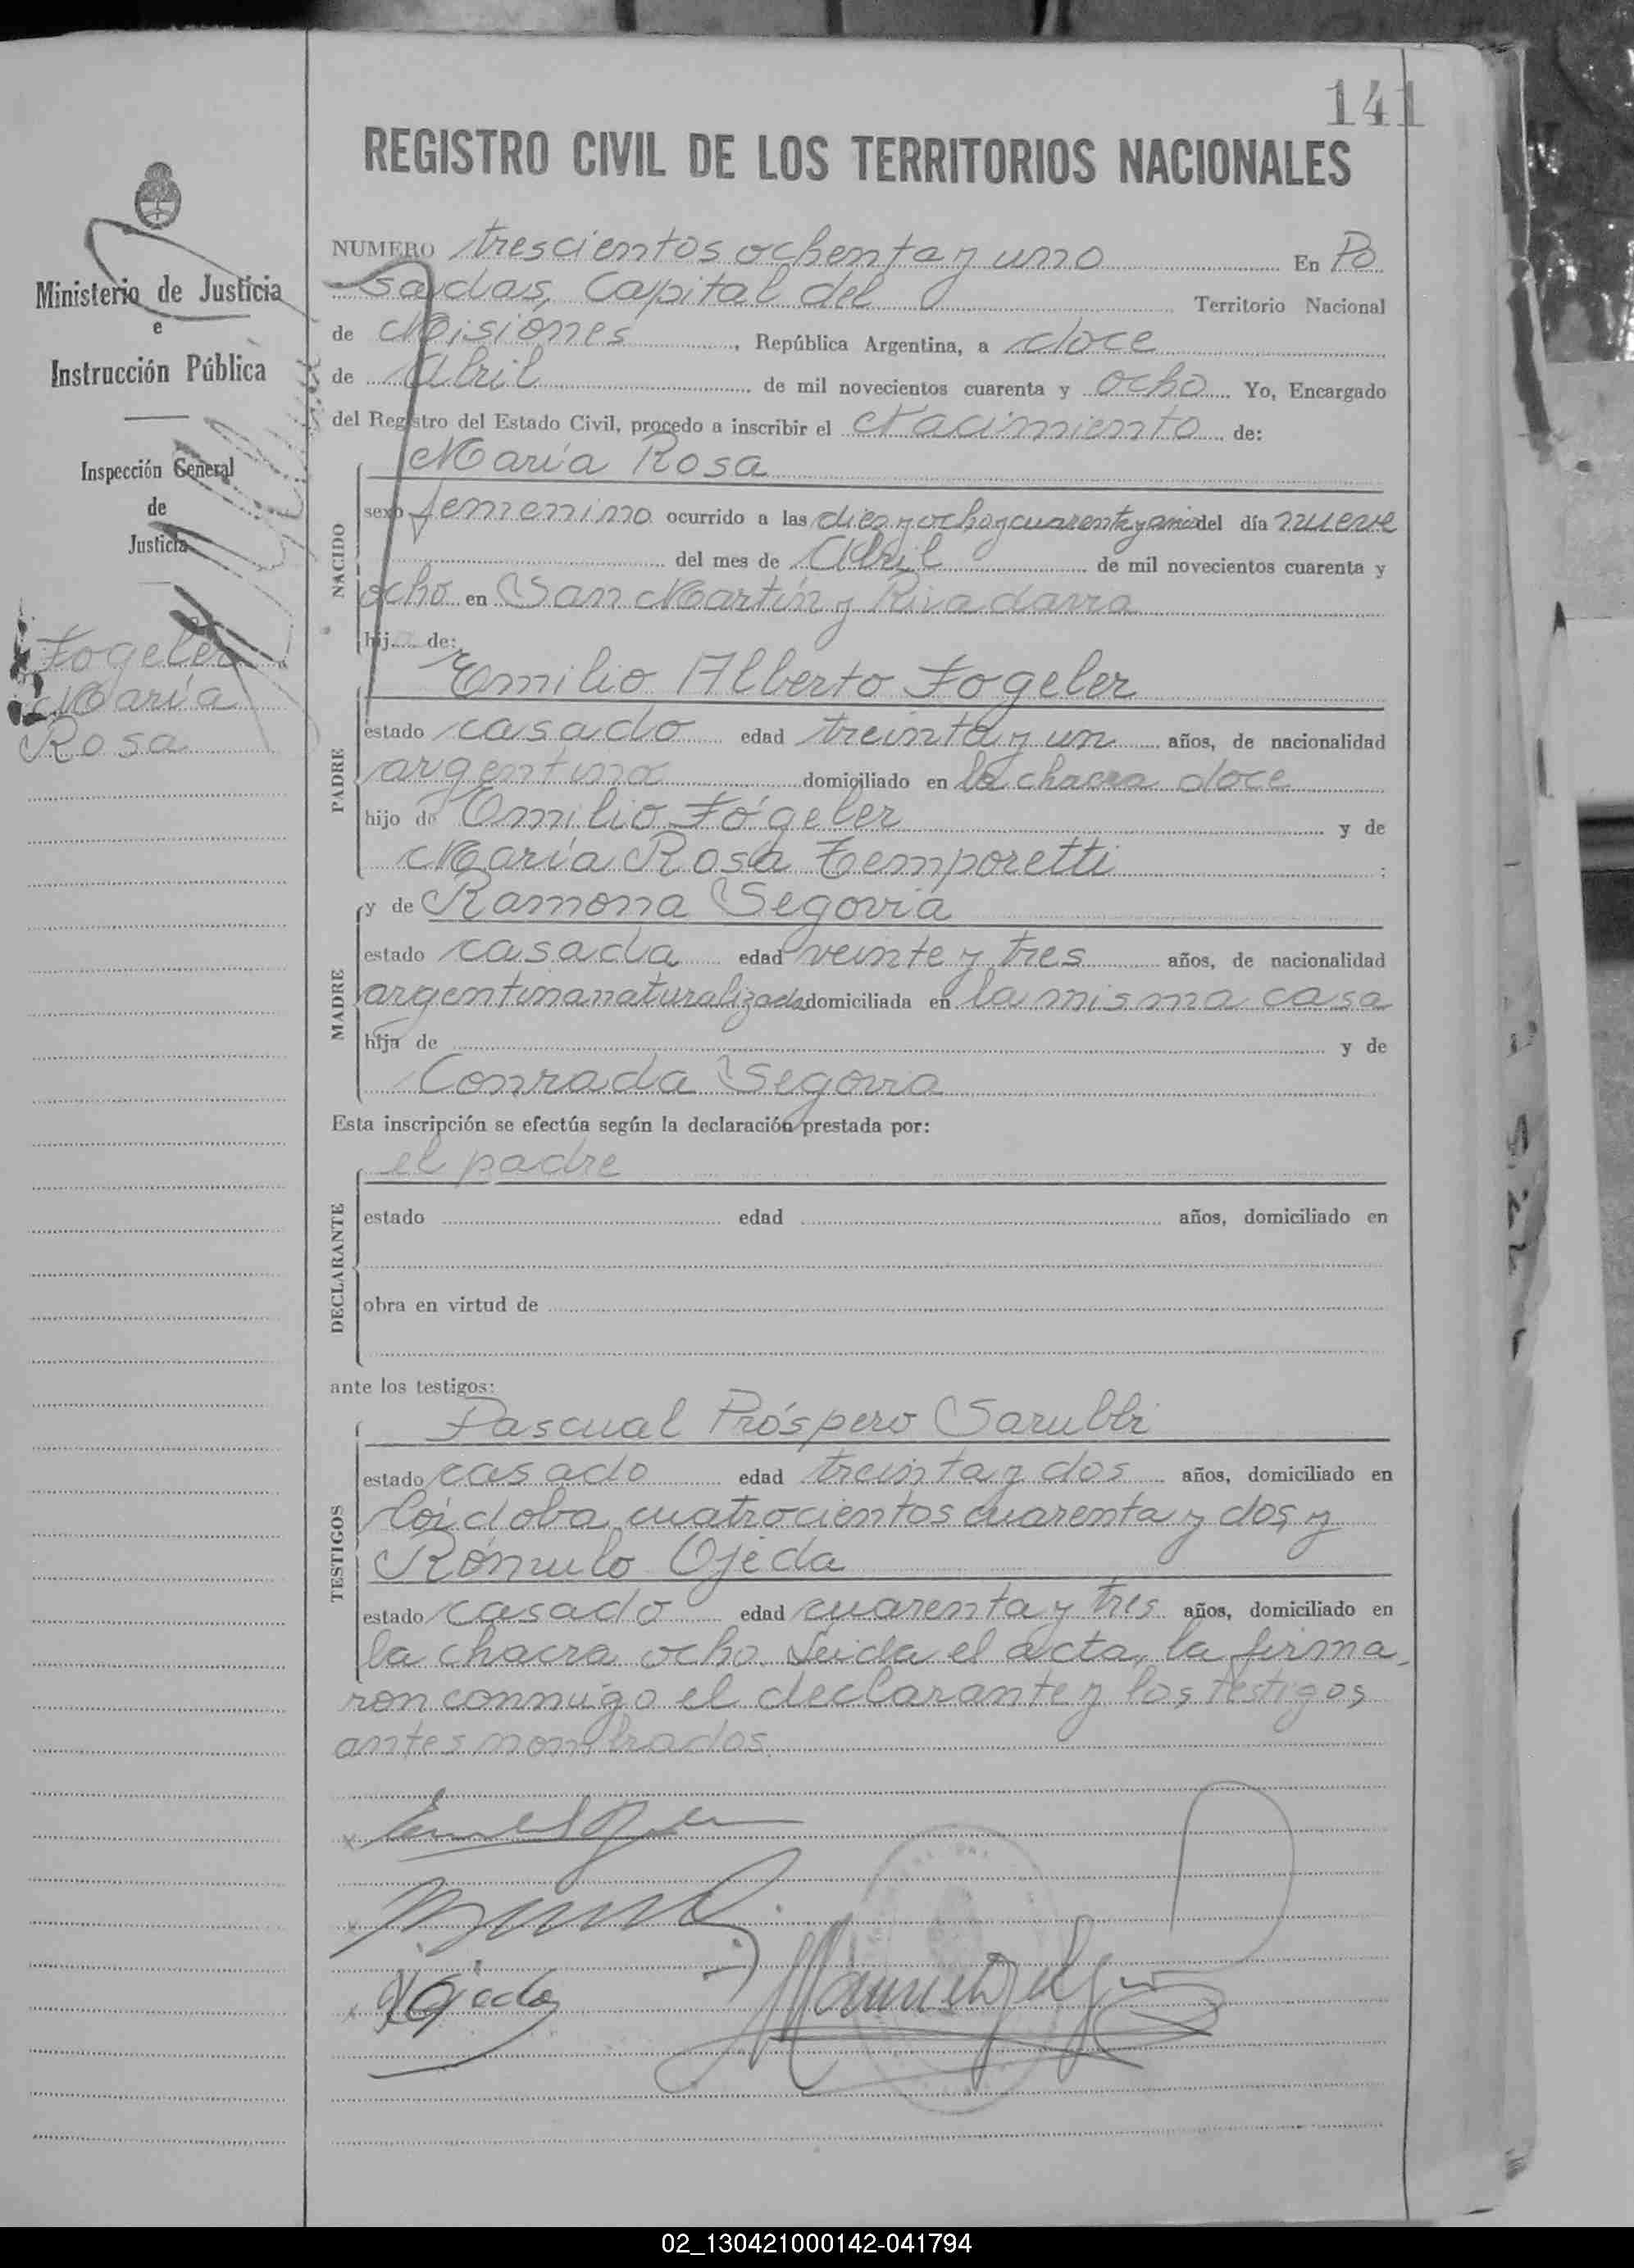 141
REGISTRO CIVIL DE LOS TERRITORIOS NACIONALES
Ministerio de Justicia
e
Instrucción Pública
Inspección General
de
Justicia
Fogeler
María
Rosa
NUMERO trescientos ochenta y uno En Po
sadas, Capital del Territorio Nacional
de Misiones, República Argentina, a doce
de Abril de mil novecientos cuarenta y ocho Yo, Encargado
del Registro del Estado Civil, procedo a inscribir el Nacimiento de:
NACIDO
María Rosa
sexo femenino ocurrido a las diez y ocho y cuarenta y cinco del día nueve
del mes de Abril de mil novecientos cuarenta y
ocho en San Martín y Rivadavia
hij de:
PADRE
Emilio Alberto Fogeler
estado casado edad treinta y un años, de nacionalidad
argentino domiciliado en la chacra doce
hijo de Emilio Fógeler y de
María Rosa Temporetti ;
MADRE
y de Ramona Segovia
estado casada edad veinte y tres años, de nacionalidad
argentina naturalizada domiciliada en la misma casa
hija de y de
Conrada Segovia
Esta inscripción se efectúa según la declaración prestada por:
DECLARANTE
el padre
estado edad años, domiciliado en
obra en virtud de
ante los testigos:
TESTIGOS
Pascual Próspero Sarubbi
estado casado edad treinta y dos años, domiciliado en
Córdoba cuatrocientos cuarenta y dos, y
Rómulo Ojeda
estado casado edad cuarenta y tres años, domiciliado en
la chacra ocho. Leida el acta, la firma
ron conmigo el declarante y los testigos
antes nombrados
Ojeda
02_130421000142-041794